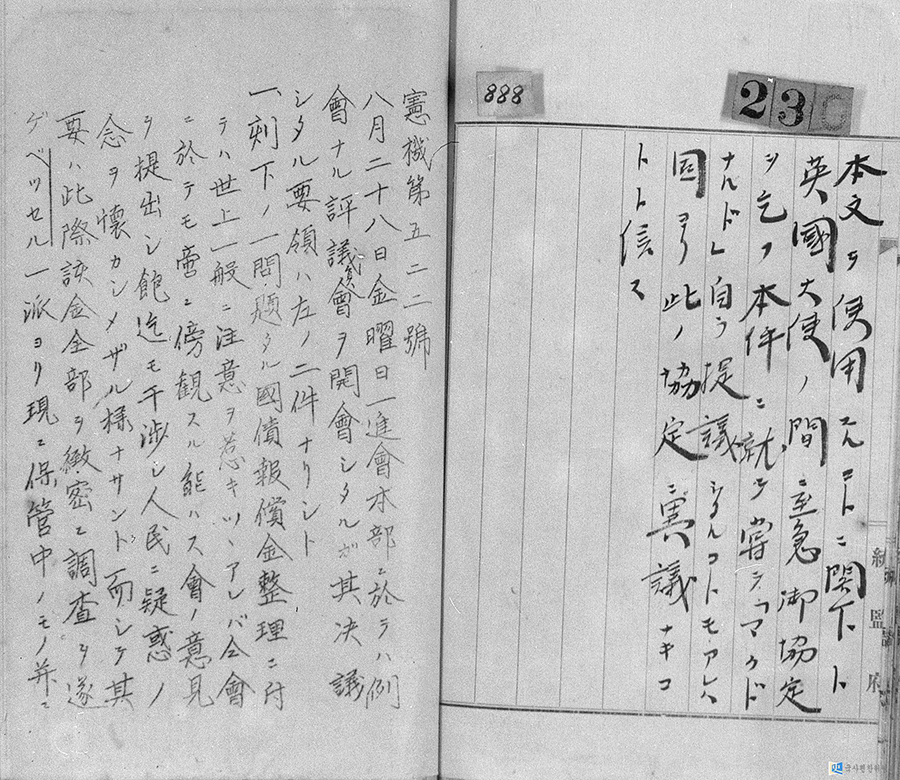 888
23
本文ヲ使用スルコトニ閣下ト
英國大使ノ間ニ至急御協定
ヲ乞フ本件ニ就テ嘗テマクド
ナルド自ラ提議シタルコトモアレハ
同國ヨリ此ノ協定ニ異議ナキコ
トト信ス
統監府
憲機第五二二號
八月二十八日金曜日一進會本部ニ於テハ例
會ナル評議員會ヲ開會シタルガ其決議
シタル要領ハ左ノ二件ナリシト
一刻下ノ一問題タル國債報償金整理ニ付
テハ世上一般ニ注意ヲ惹キツヽアレバ仝會
ニ於テモ啻ニ傍観スル能ハス會ノ意見
ヲ提出シ飽迄モ干渉シ人民ニ疑惑ノ
念ヲ懐カシメザル様ナサント而シテ其
要ハ此際該金全部ヲ緻密ニ調査ヲ遂
ゲベッセル一派ヨリ現ニ保管中ノモノ并ニ
국사편찬위원회